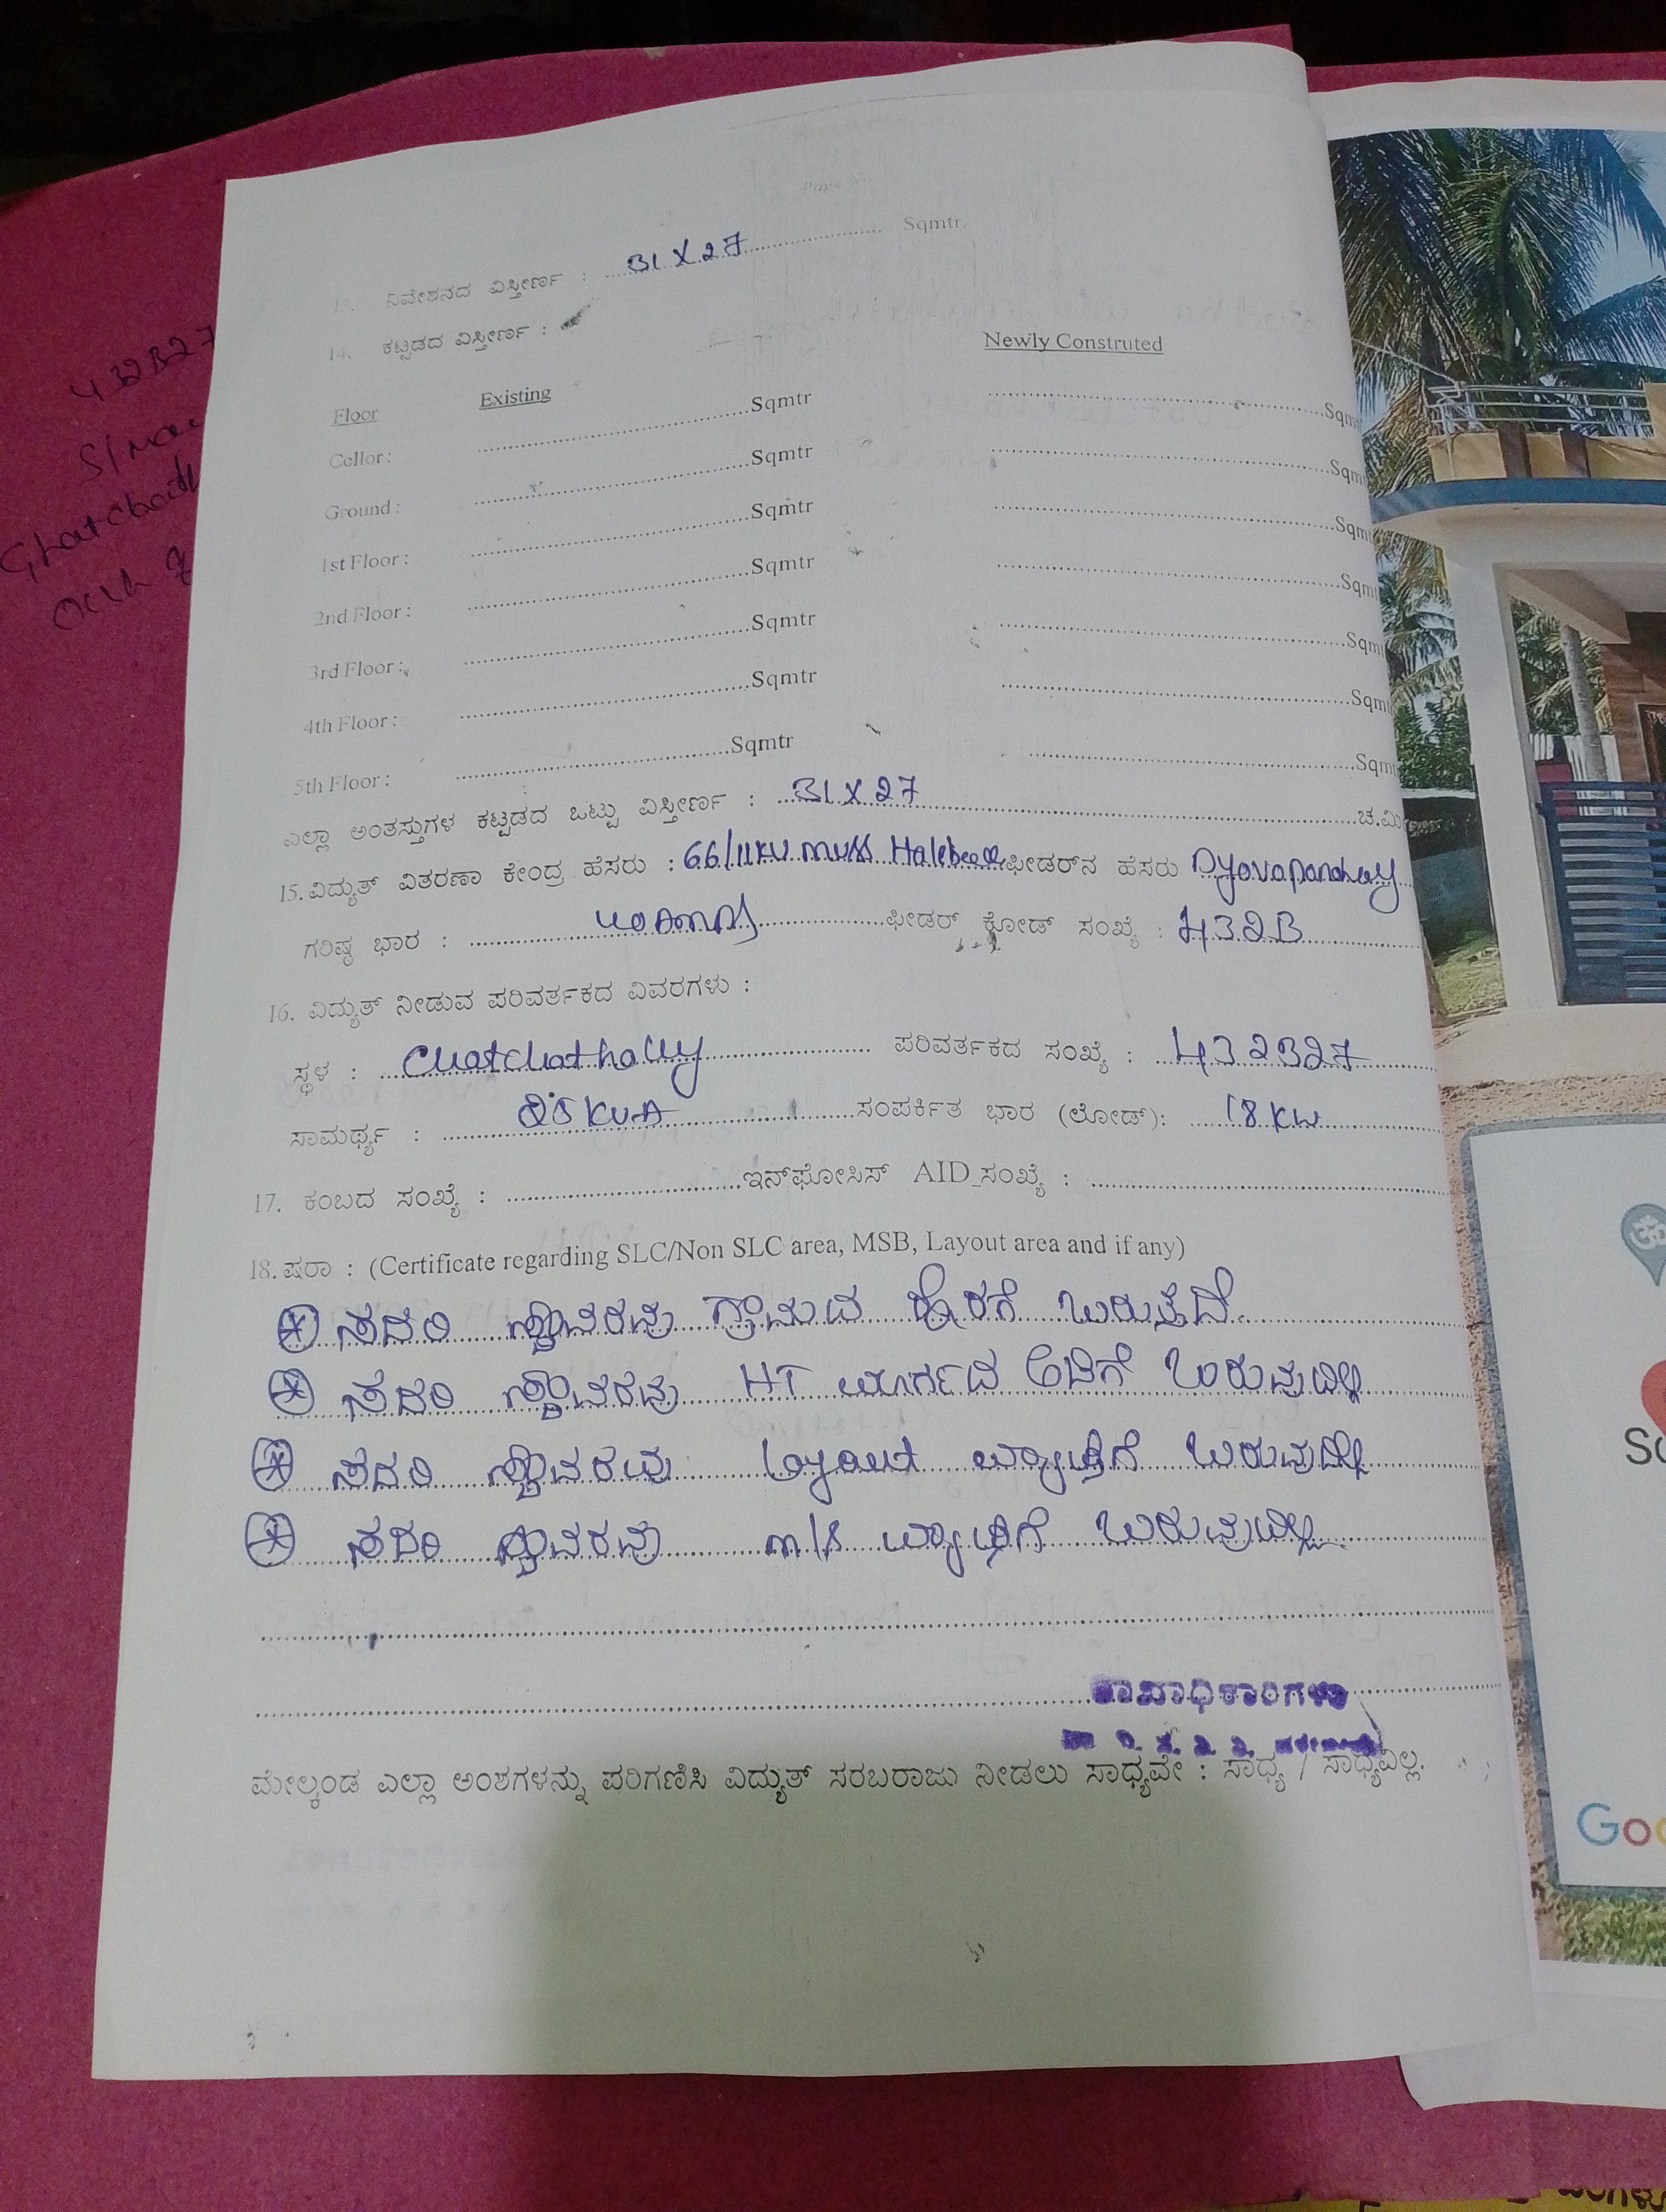 13. ನಿವೇಶನದ ವಿಸ್ತೀರ್ಣ : 31 X 27 Sqmtr.
14. ಕಟ್ಟಡದ ವಿಸ್ತೀರ್ಣ :
Floor Existing Newly Construted
Cellor : Sqmtr Sqm
Ground : Sqmtr Sqm
1st Floor : Sqmtr Sqm
2nd Floor : Sqmtr Sqm
3rd Floor : Sqmtr Sqm
4th Floor : Sqmtr Sqm
5th Floor : Sqmtr Sqm
ಎಲ್ಲಾ ಅಂತಸ್ತುಗಳ ಕಟ್ಟಡದ ಒಟ್ಟು ವಿಸ್ತೀರ್ಣ : 31 X 27 ಚ.ಮಿ
15. ವಿದ್ಯುತ್ ವಿತರಣಾ ಕೇಂದ್ರ ಹೆಸರು : 66/11KV MUSS Halebeed ಫೀಡರ್‌ನ ಹೆಸರು Dyavapanahally
ಗರಿಷ್ಠ ಭಾರ : 40 Amps ಫೀಡರ್ ಕೋಡ್ ಸಂಖ್ಯೆ : 432B
16. ವಿದ್ಯುತ್ ನೀಡುವ ಪರಿವರ್ತಕದ ವಿವರಗಳು :
ಸ್ಥಳ : Chatchathally ಪರಿವರ್ತಕದ ಸಂಖ್ಯೆ : 432B27
ಸಾಮರ್ಥ್ಯ : 25 KVA ಸಂಪರ್ಕಿತ ಭಾರ (ಲೋಡ್): 18 KW
17. ಕಂಬದ ಸಂಖ್ಯೆ : ಇನ್‌ಫೋಸಿಸ್ AID ಸಂಖ್ಯೆ :
18. ಷರಾ : (Certificate regarding SLC/Non SLC area, MSB, Layout area and if any)
ಸದರಿ ಸ್ಥಾವರವು ಗ್ರಾಮದ ಹೊರಗೆ ಬರುತ್ತದೆ.
ಸದರಿ ಸ್ಥಾವರವು HT ಮಾರ್ಗದ ಅಡಿಗೆ ಬರುವುದಿಲ್ಲ
ಸದರಿ ಸ್ಥಾವರವು Layout ವ್ಯಾಪ್ತಿಗೆ ಬರುವುದಿಲ್ಲ
ಸದರಿ ಸ್ಥಾವರವು m/s ವ್ಯಾಪ್ತಿಗೆ ಬರುವುದಿಲ್ಲ
ಶಾಖಾಧಿಕಾರಿಗಳು
ಮೇಲ್ಕಂಡ ಎಲ್ಲಾ ಅಂಶಗಳನ್ನು ಪರಿಗಣಿಸಿ ವಿದ್ಯುತ್ ಸರಬರಾಜು ನೀಡಲು ಸಾಧ್ಯವೇ : ಸಾಧ್ಯ / ಸಾಧ್ಯವಿಲ್ಲ.
432B27
Goo